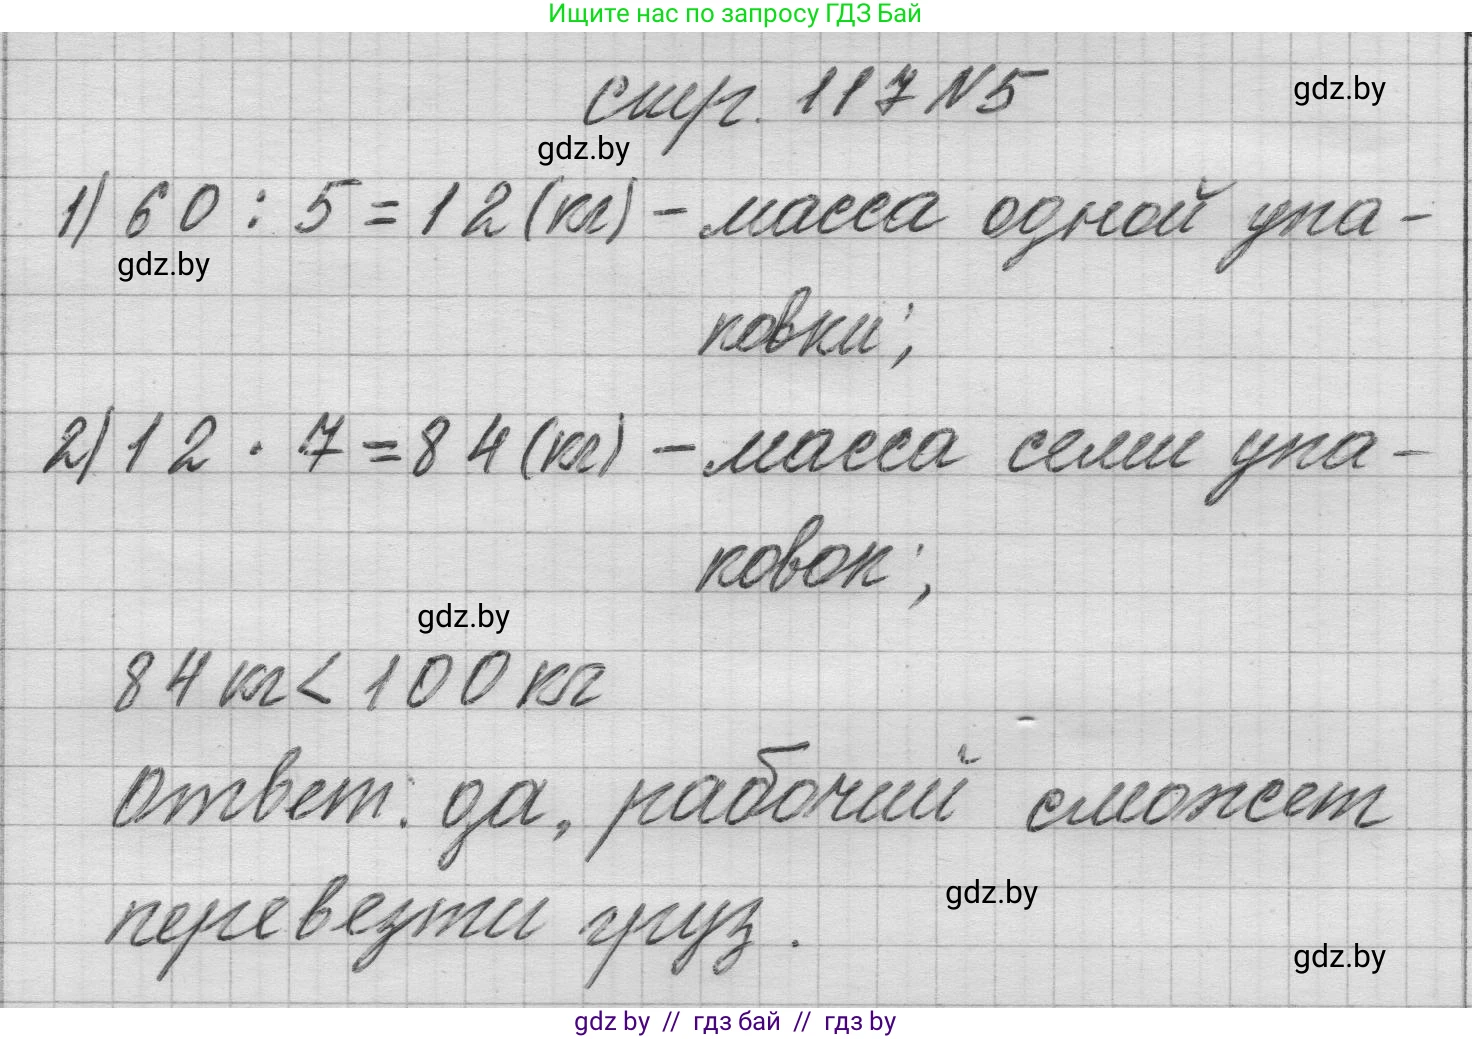 Ищите нас по запросу ГДЗ Бай
стр. 117 N5
gdz.by
gdz.by
1) 60 : 5 = 12 (кг) - масса одной упа-
gdz.by
ковки;
2) 12 · 7 = 84 (кг) - масса семи упа-
ковок;
gdz.by
84 кг < 100 кг
Ответ: да, рабочий сможет
перевезти груз.
gdz.by
gdz.by
gdz by // гдз бай // гдз by